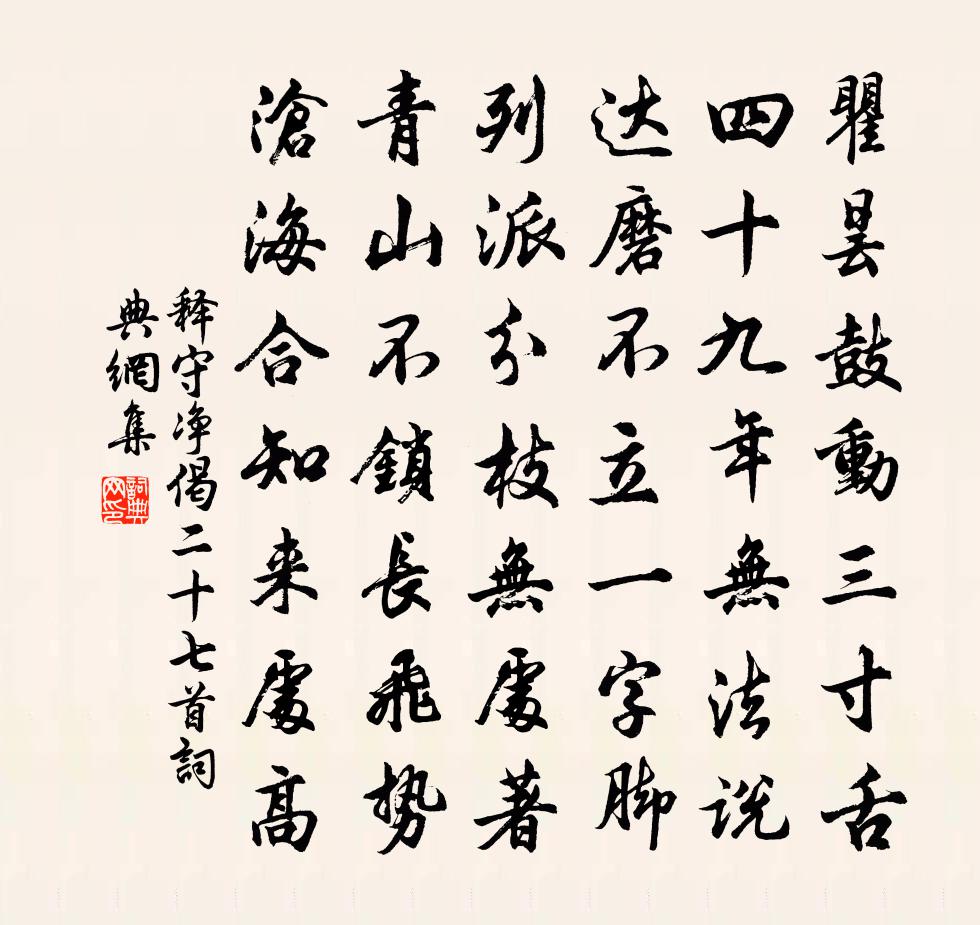 瞿曇鼓動三寸舌
四十九年無法説
达磨不立一字脚
列派分枝無處著
青山不鎖長飛勢
滄海合知来處高
释守净偈二十七首詞
典網集
詞典
网印